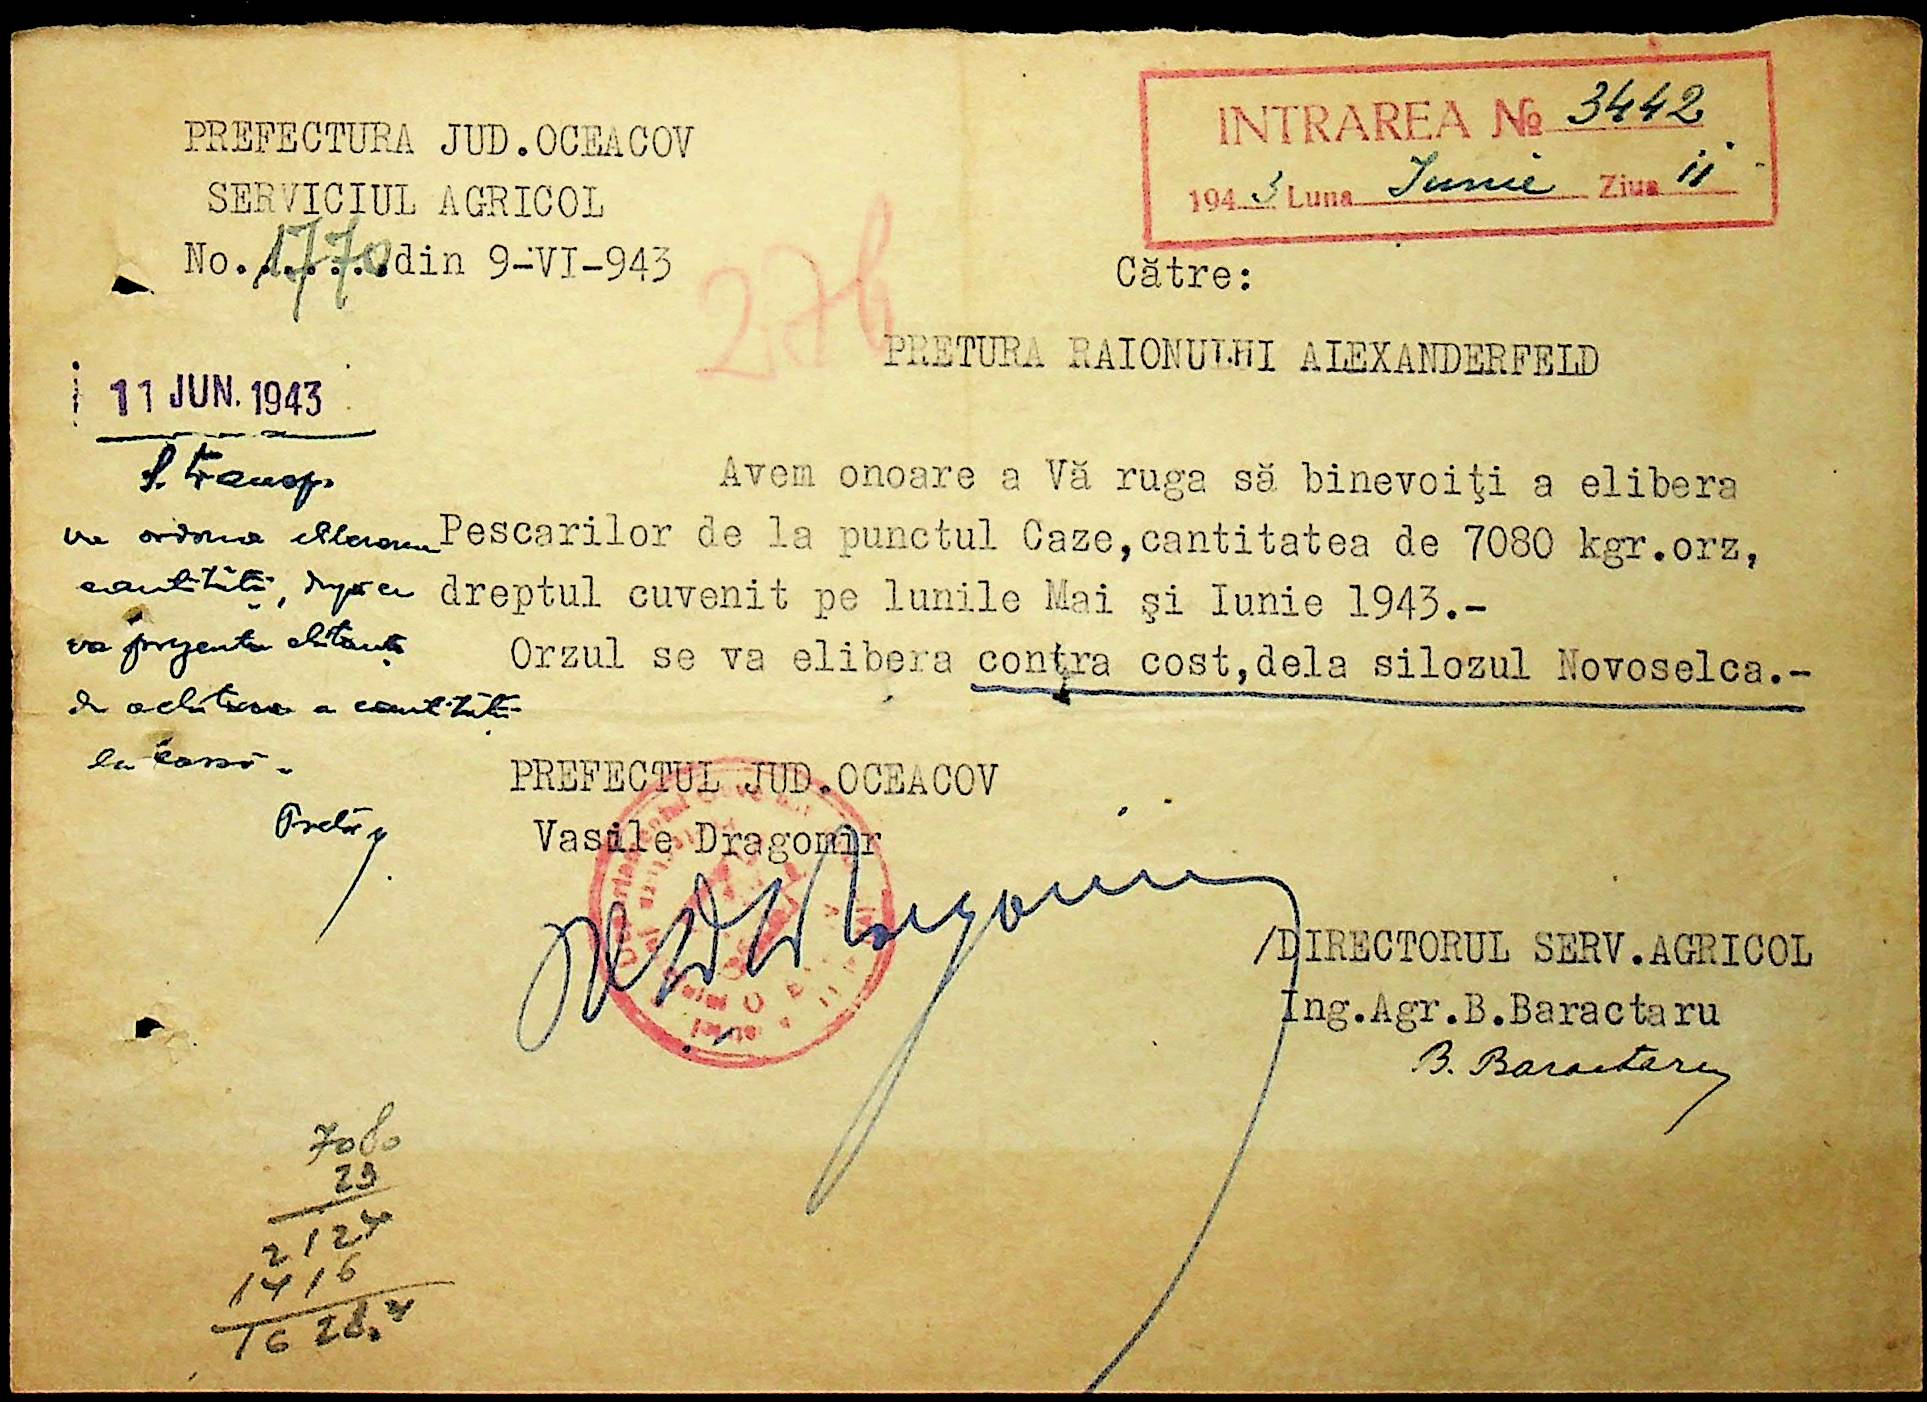 PREFECTURA JUD.OCEACOV
SERVICIUL AGRICOL
No.1770 din 9-VI-943
INTRAREA № 3442
1943 Luna Iunie Ziua 11
276
Către:
PRETURA RAIONULUI ALEXANDERFELD
11 JUN. 1943
Avem onoare a Vă ruga să binevoiţi a elibera
Pescarilor de la punctul Caze,cantitatea de 7080 kgr.orz,
dreptul cuvenit pe lunile Mai şi Iunie 1943.-
Orzul se va elibera contra cost,dela silozul Novoselca.-
S. transp.
va ordona eliberarea
cantităţii, după ce
va prezenta chitanţa
de achitare a cantităţii
la casă.-
Pretor
PREFECTUL JUD.OCEACOV
Vasile Dragomir
/DIRECTORUL SERV.AGRICOL
Ing.Agr.B.Baractaru
B. Baractaru
7080
23
2124
1416
1628.4